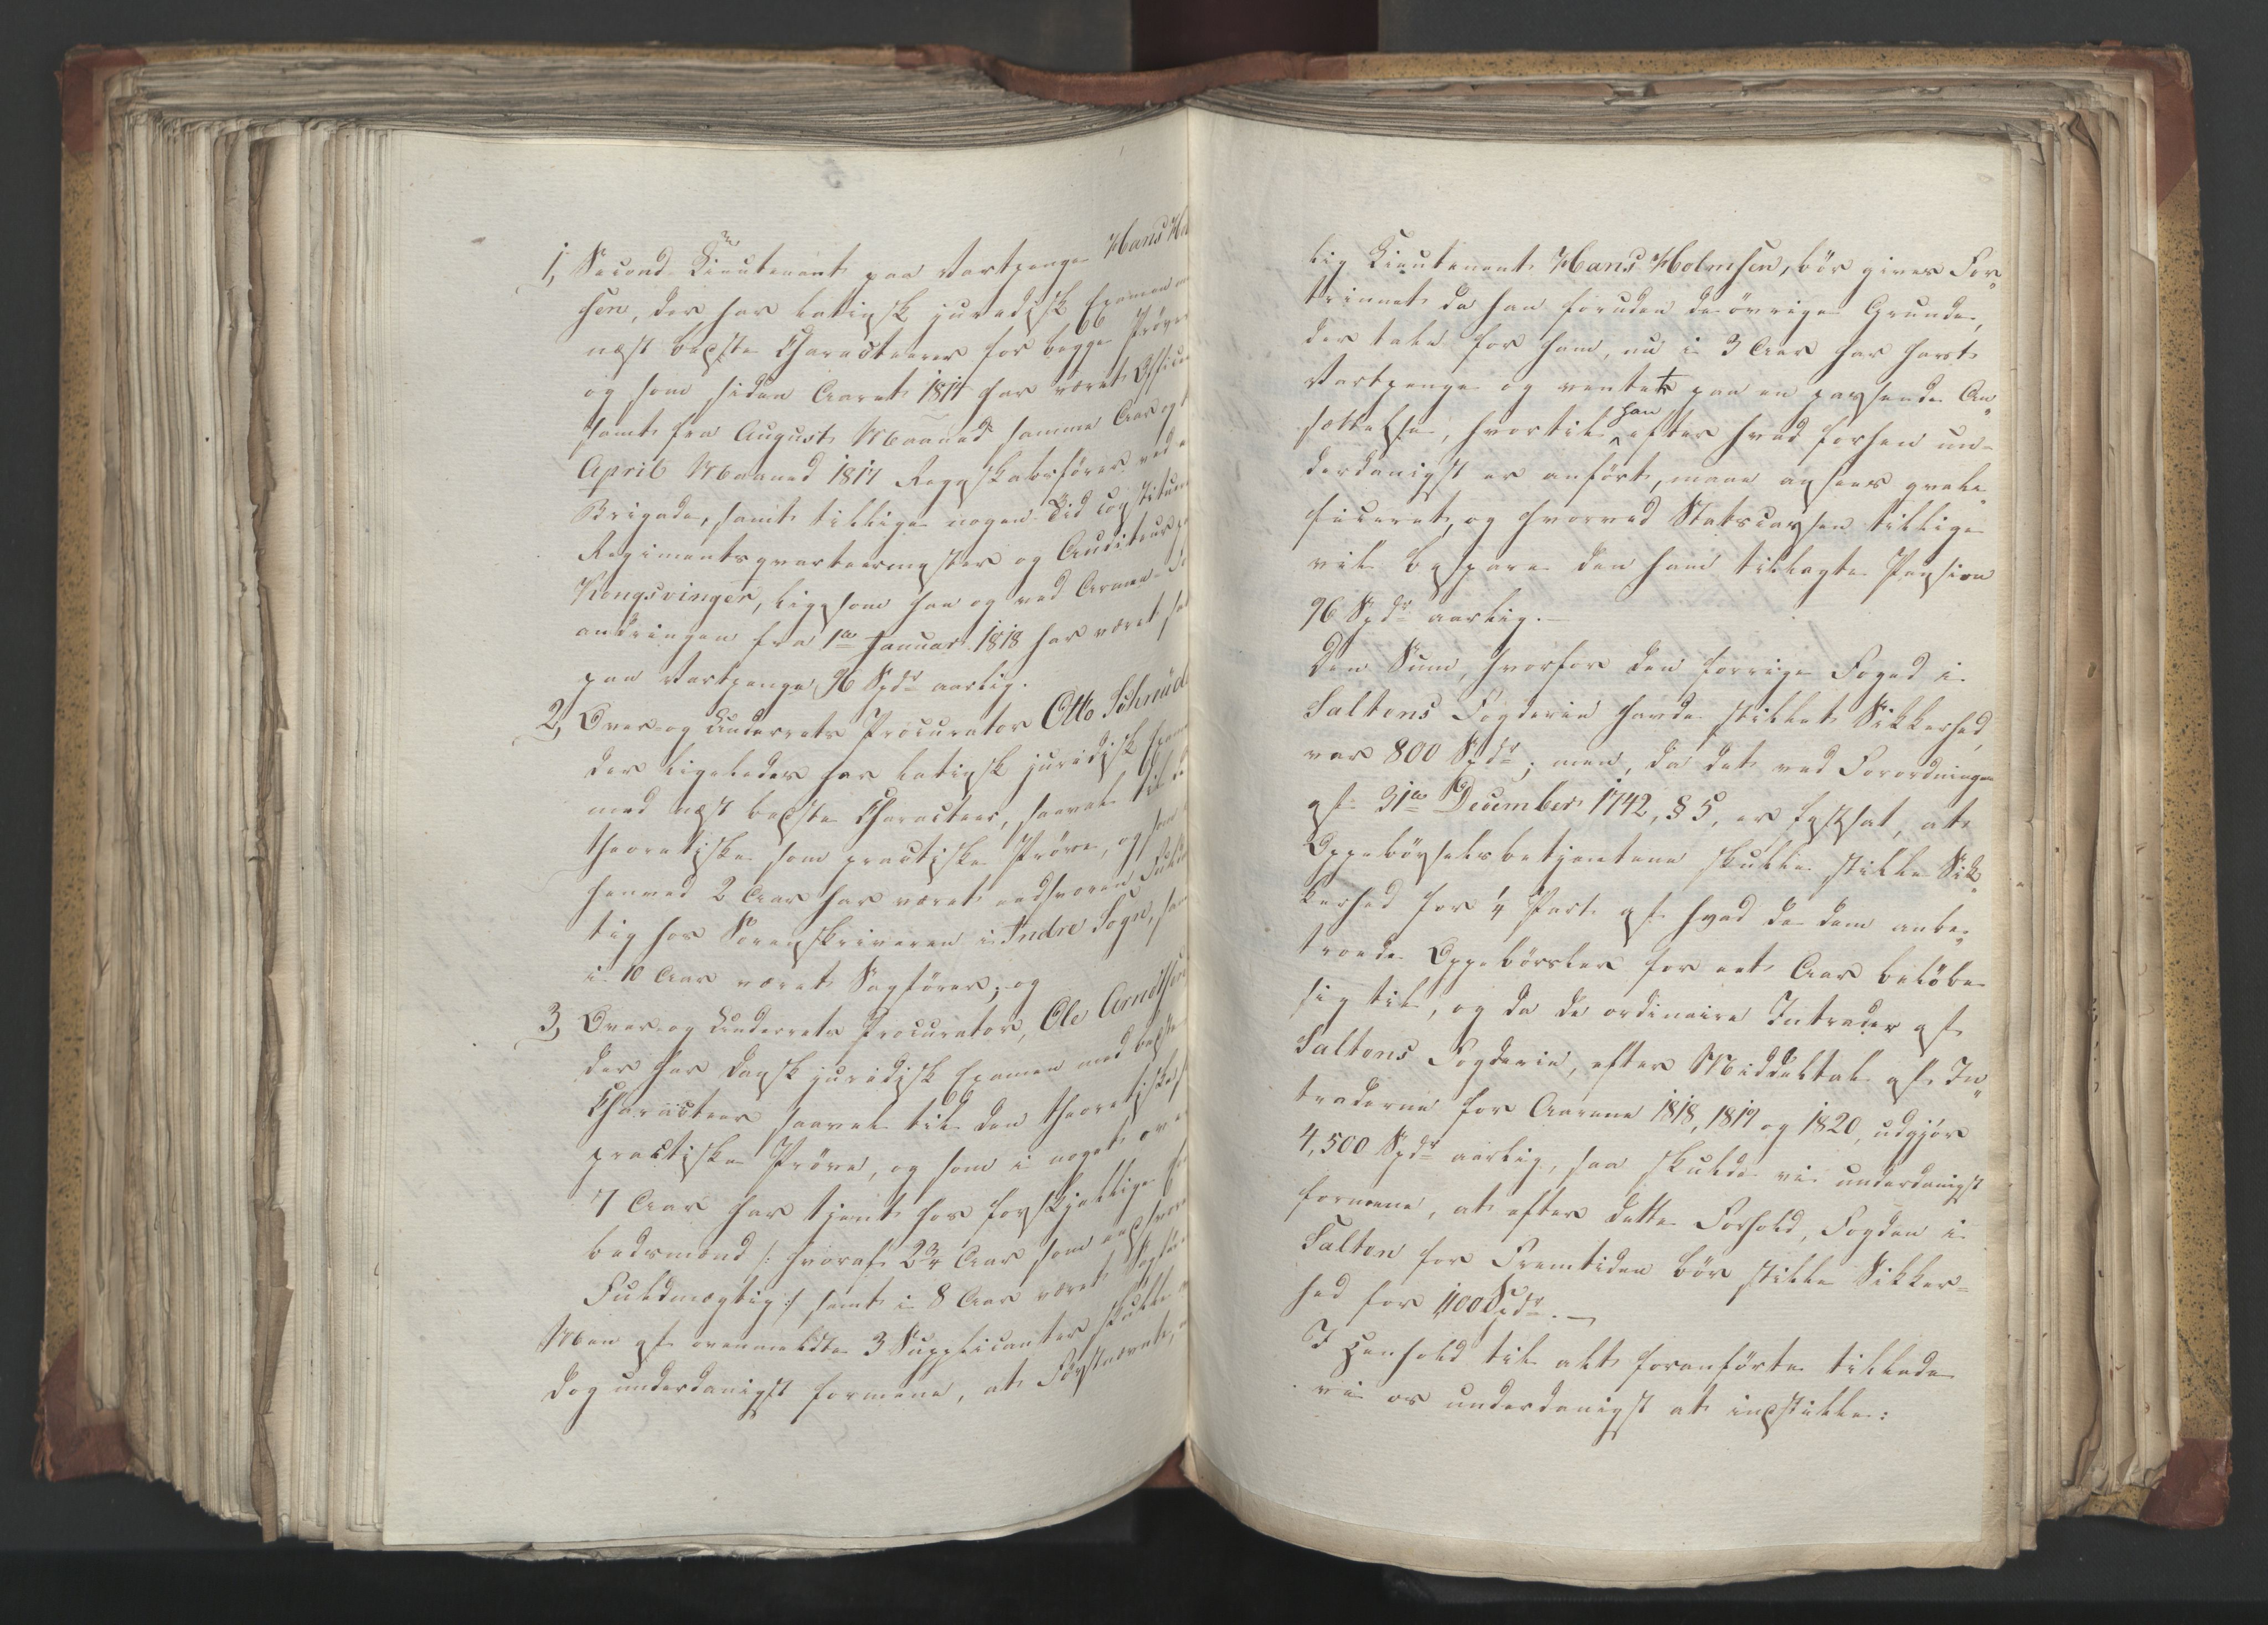 1, Second-Lieutenant paa Vartpenge Hans Ho
sen, der har latinsk juridisk Examen m
næst bedste Characteerer for begge Prøver
og som siden Aaret 1814 har været Officee
samt fra August Maaned samme Aar og t
April Maaned 1817 Regnskabsfører ved
Brigade, samt tillige nogen Tid constituer
Regimentsqvarteermester og Auditeur
Kongsvinger, ligesom han og ved Armee-
andringen fra 1ste Januar 1818 har været
paa Vartpenge 96 Spdr aarlig.
2, Over- og Underrets Procurator Otto Schnüd
der ligeledes har latinsk juridisk Exam
med næst bedste Characteer, saavel til d
theoretiske som practiske Prøve, og som
henved 2 Aar har været eedsvoren Fuld
tig hos Sorenskriveren i Indre Sogn, sam
i 10 Aar været Sagfører; og
3, Over- og Underrets Procurator, Ole Arndtsen
der har dansk juridisk Examen med bedste
Characteer saavel til den theoretiske
practiske Prøve, og som i noget over
7 Aar har tjent hos forskjellige
bedsmænd /: hvoraf 2¾ Aar som eedsvoren
Fuldmægtig :/ samt i 8 Aar været Sagfør
Men af ovenmeldte 3 Supplicanter skulle
dog underdanigst formene, at Førstnævnte,
lig Lieutenant Hans Holmsen, bør gives For„
trinnet da han foruden de øvrige Grunde,
der tale for ham, nu i 3 Aar har havt
Vartpenge og ventet paa en passende An„
sættelse, hvortil han efter hvad forhen un-
derdanigst er anført, maae ansees qvali„
ficeret, og hvorved Statscassen tillige
vil bespare den ham tillagte Pension
96 Spdr aarlig.—
Den Sum, hvorfor den forrige Foged i
Saltens Fogderie havde stillet Sikkerhed,
var 800 Spdr; men, da det ved Forordningen
af 31te December 1742, § 5, er fastsat, at
Oppebørselsbetjentene skulle stille Sik„
kerhed for ¼ Part af hvad de dem anbe„
troede Oppebørsler for eet Aar beløbe
sig til, og da de ordinaire Intrader af
Saltens Fogderie, efter Middeltal af In„
traderne for Aarene 1818, 1819 og 1820, udgjør
4,500 Spdr aarlig, saa skulde vi underdanigst
formene, at efter dette Forhold, Fogden i
Salten for Fremtiden bør stille Sikker-
hed for 1100 Spdr.—
I Henhold til alt foranførte tillade
vi os underdanigst at indstille: